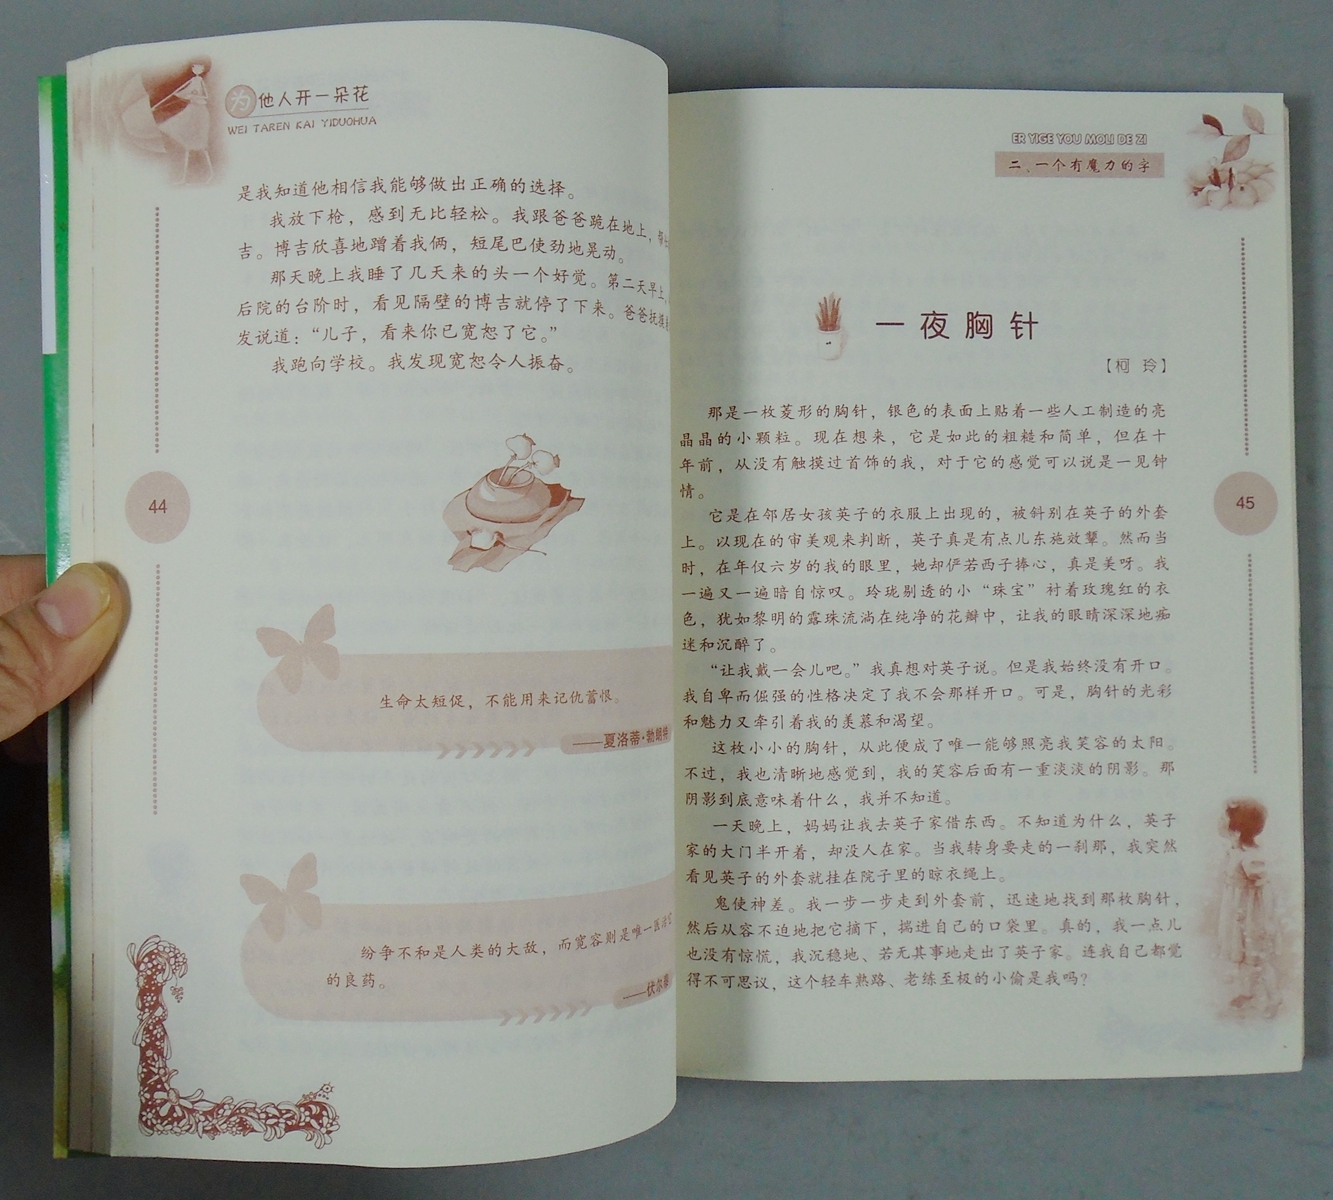 为他人开一朵花
WEI TAREN KAI YIDUOHUA
是我知道他相信我能够做出正确的选择。
我放下枪，感到无比轻松。我跟爸爸跪在地上，
吉。博吉欣喜地蹭着我俩，短尾巴使劲地晃动。
那天晚上我睡了几天来的头一个好觉。第二天早上，
后院的台阶时，看见隔壁的博吉就停了下来。爸爸抚摸
发说道：“儿子，看来你已宽恕了它。”
我跑向学校。我发现宽恕令人振奋。
44
生命太短促，不能用来记仇蓄恨。
——夏洛蒂·勃朗特
纷争不和是人类的大敌，而宽容则是唯一医治它
的良药。
——伏尔泰
ER YIGE YOU MOLI DE ZI
二、一个有魔力的字
一夜胸针
【柯 玲】
那是一枚菱形的胸针，银色的表面上贴着一些人工制造的亮
晶晶的小颗粒。现在想来，它是如此的粗糙和简单，但在十
年前，从没有触摸过首饰的我，对于它的感觉可以说是一见钟
情。
它是在邻居女孩英子的衣服上出现的，被斜别在英子的外套
上。以现在的审美观来判断，英子真是有点儿东施效颦。然而当
时，在年仅六岁的我的眼里，她却俨若西子捧心，真是美呀。我
一遍又一遍暗自惊叹。玲珑剔透的小“珠宝”衬着玫瑰红的衣
色，犹如黎明的露珠流淌在纯净的花瓣中，让我的眼睛深深地痴
迷和沉醉了。
“让我戴一会儿吧。”我真想对英子说。但是我始终没有开口。
我自卑而倔强的性格决定了我不会那样开口。可是，胸针的光彩
和魅力又牵引着我的羡慕和渴望。
这枚小小的胸针，从此便成了唯一能够照亮我笑容的太阳。
不过，我也清晰地感觉到，我的笑容后面有一重淡淡的阴影。那
阴影到底意味着什么，我并不知道。
一天晚上，妈妈让我去英子家借东西。不知道为什么，英子
家的大门半开着，却没人在家。当我转身要走的一刹那，我突然
看见英子的外套就挂在院子里的晾衣绳上。
鬼使神差。我一步一步走到外套前，迅速地找到那枚胸针，
然后从容不迫地把它摘下，揣进自己的口袋里。真的，我一点儿
也没有惊慌，我沉稳地、若无其事地走出了英子家。连我自己都觉
得不可思议，这个轻车熟路、老练至极的小偷是我吗？
45